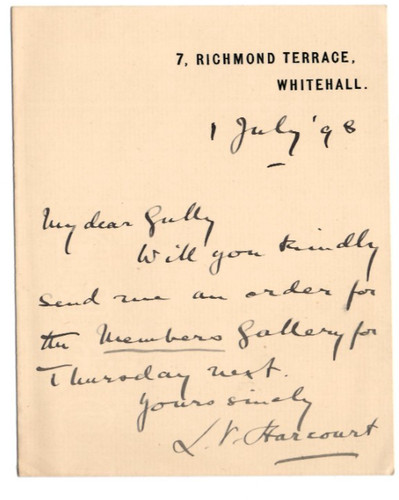 7, RICHMOND TERRACE,
WHITEHALL.
1 July '98
My dear Gully
Will you kindly
send me an order for
the Members Gallery for
Thursday next.
Yours sincely
L. V. Harcourt